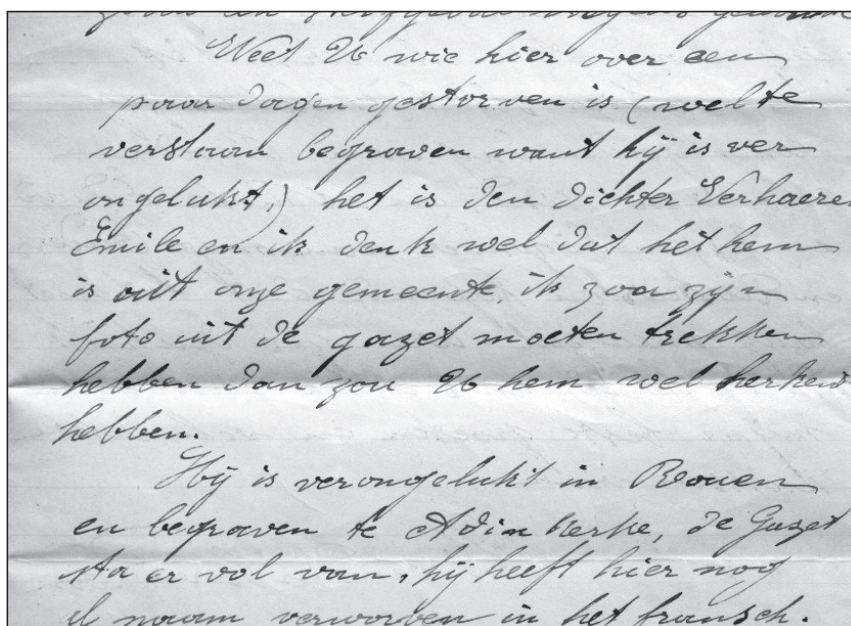 Weet U wie hier over een
paar dagen gestorven is (wel te
verstaan begraven want hij is ver
ongelukt,) het is den dichter Verhaere
Emile en ik denk wel dat het hem
is uit onze gemeente, ik zoo zijn
foto uit de gazet moeten trekken
hebben dan zou U hem wel herkend
hebben.
Hij is verongelukt in Rouen
en begraven te Adinkerke, de Gazet
sta er vol van, hij heeft hier nog
al naam verworven in het fransch.